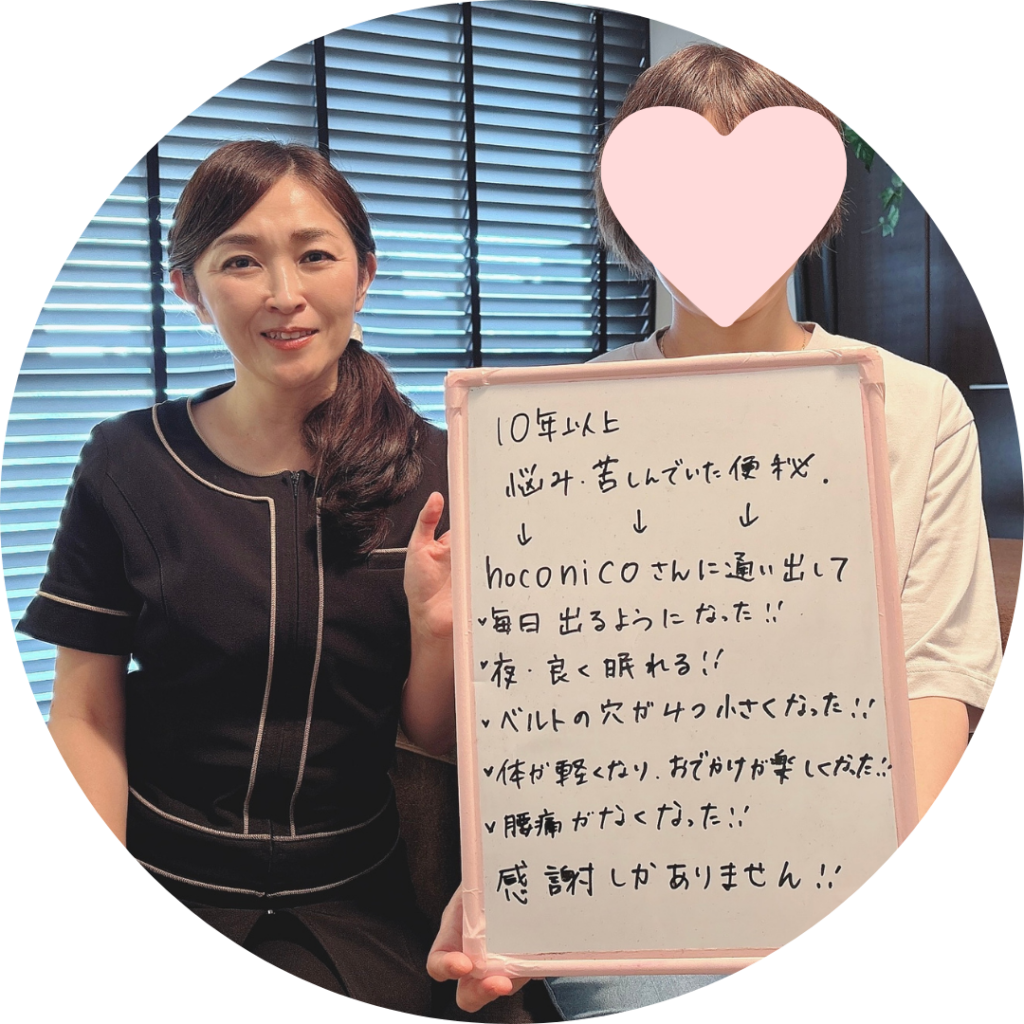 10年以上
悩み・苦しんでいた便秘.
↓ ↓ ↓
hoconicoさんに通い出して
✓毎日出るようになった!!
✓夜・良く眠れる!!
✓ベルトの穴が4つ小さくなった!!
✓体が軽くなり.おでかけが楽しくなった!!
✓腰痛がなくなった!!
感謝しかありません!!